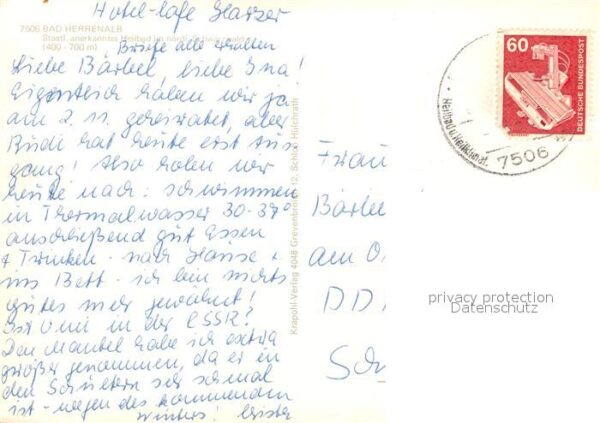 Hotel-Cafe Harzer
7506 BAD HERRENALB
Staatl. anerkanntes Heilbad im nördl. Schwarzwald
(400 - 700 m)
Briefe alle erhalten
Liebe Bärbel, liebe Ina!
Eigentlich haben wir ja
am 2. 11. geheiratet, aber
Rudi hat heute erst Aus
gang! Also holen wir
heute nach: schwimmen
in Thermalwasser 30-37°
anschließend gut Essen
+ Trinken - nach Hause +
ins Bett - ich bin nichts
gutes mehr gewöhnt!
Ist Omi in der CSSR?
Den Mantel habe ich extra
größer genommen, da er in
den Schultern sehr schmal
ist - wegen des kommenden
Winters!
Krapohl-Verlag 4048 Grevenbroich 12, Schloß Hülchrath
60
DEUTSCHE BUNDESPOST
7506
Frau
Bärbel
am
DD
privacy protection
Datenschutz